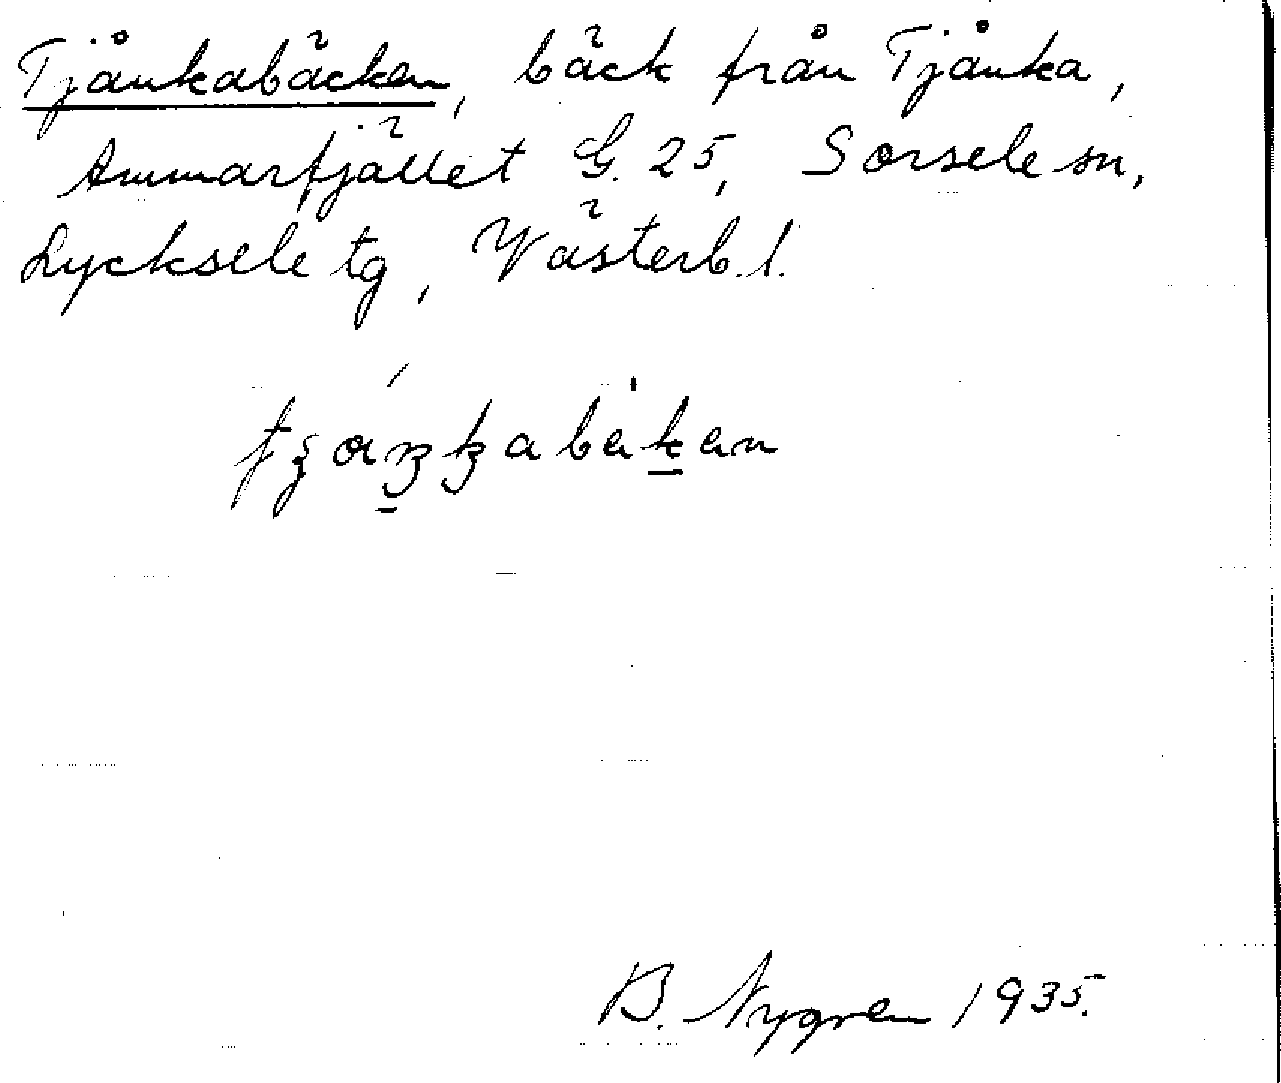 Tjånkabäcken, bäck från Tjånka,
Ammarfjället G. 25, Sorsele sn,
Lycksele tg, Västerb. l.
B. Nygren 1935.